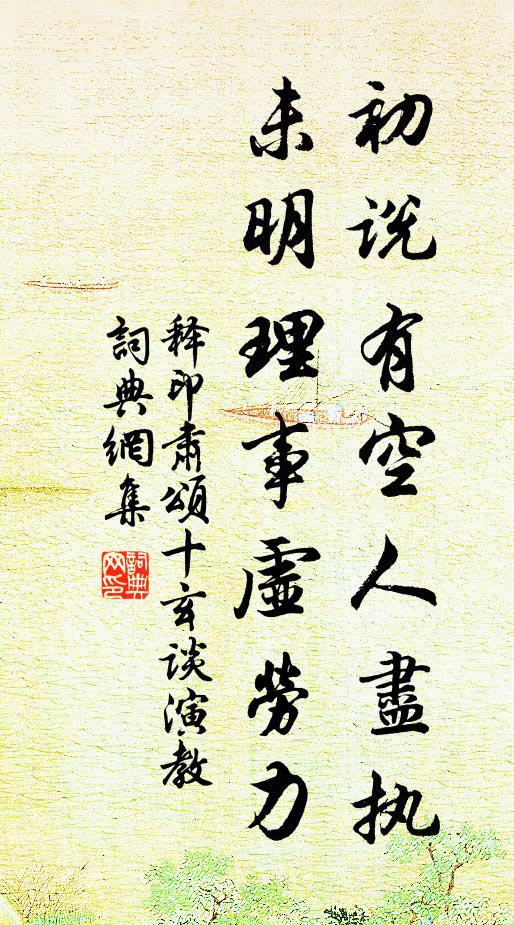 初说有空人盡执
未明理事虛勞力
释印肃頌十玄谈演教
詞典網集
詞典网印